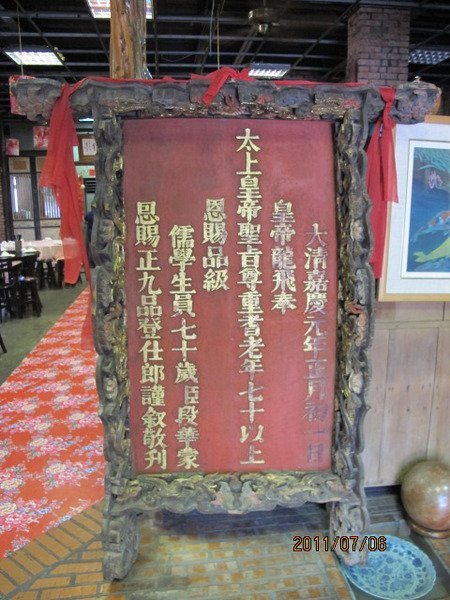 大清嘉慶元年正月初一日
皇帝龍飛奉
太上皇帝聖旨尊重耆老年七十以上
恩賜品級
儒學生員七十歲臣段華蒙
恩賜正九品登仕郎謹叙敬刊
2011/07/06